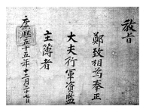 教旨
鄭致相為奉正
大夫行軍資監
主簿者
康熙五十五年十二月二十六日